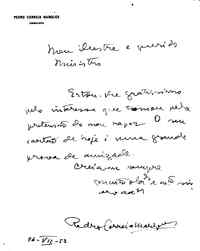 PEDRO CORREIA MARQUES
Meu Ilustre e querido
Ministro
Estou-lhe gratíssimo
pelo interesse que tomou pela
pretensão do meu rapaz. O seu
cartão de hoje é uma grande
prova de amizade.
Creia-me sempre
e
Pedro Correia Marques